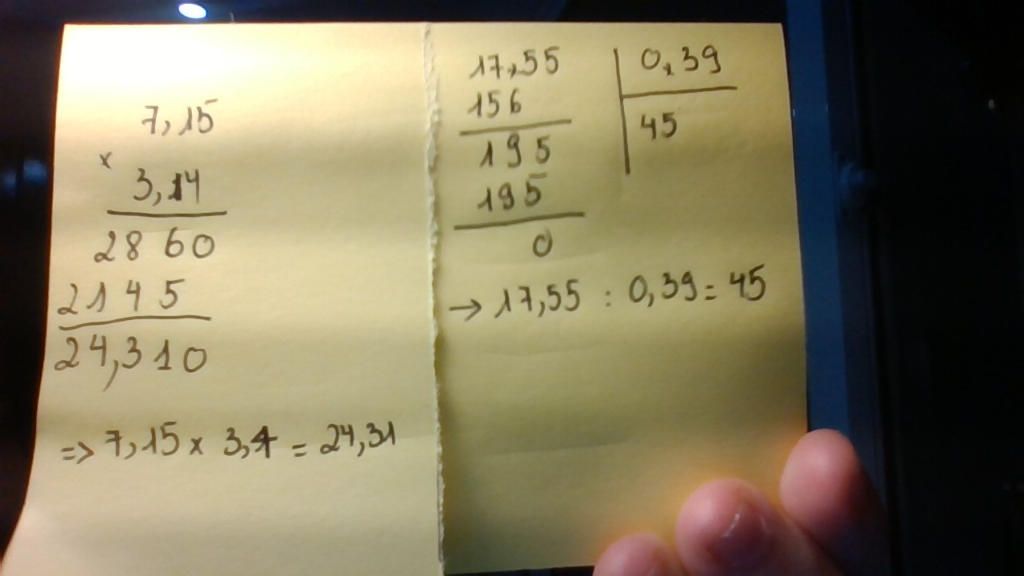 7,15
x
3,14
2860
2145
24,310
=> 7,15 x 3,4 = 24,31
17,55 0,39
156 45
195
195
0
→ 17,55 : 0,39 = 45